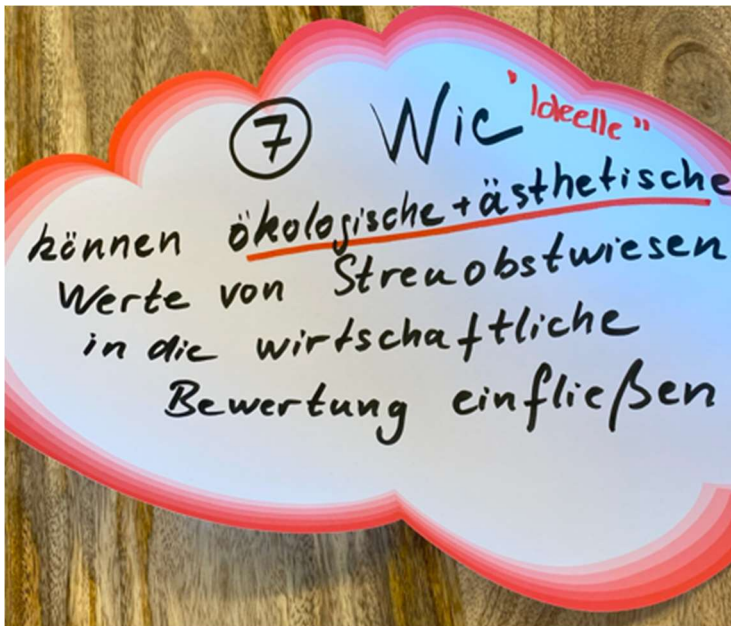 ⑦ Wie "Ideelle"
können ökologische + ästhetische
Werte von Streuobstwiesen
in die wirtschaftliche
Bewertung einfließen